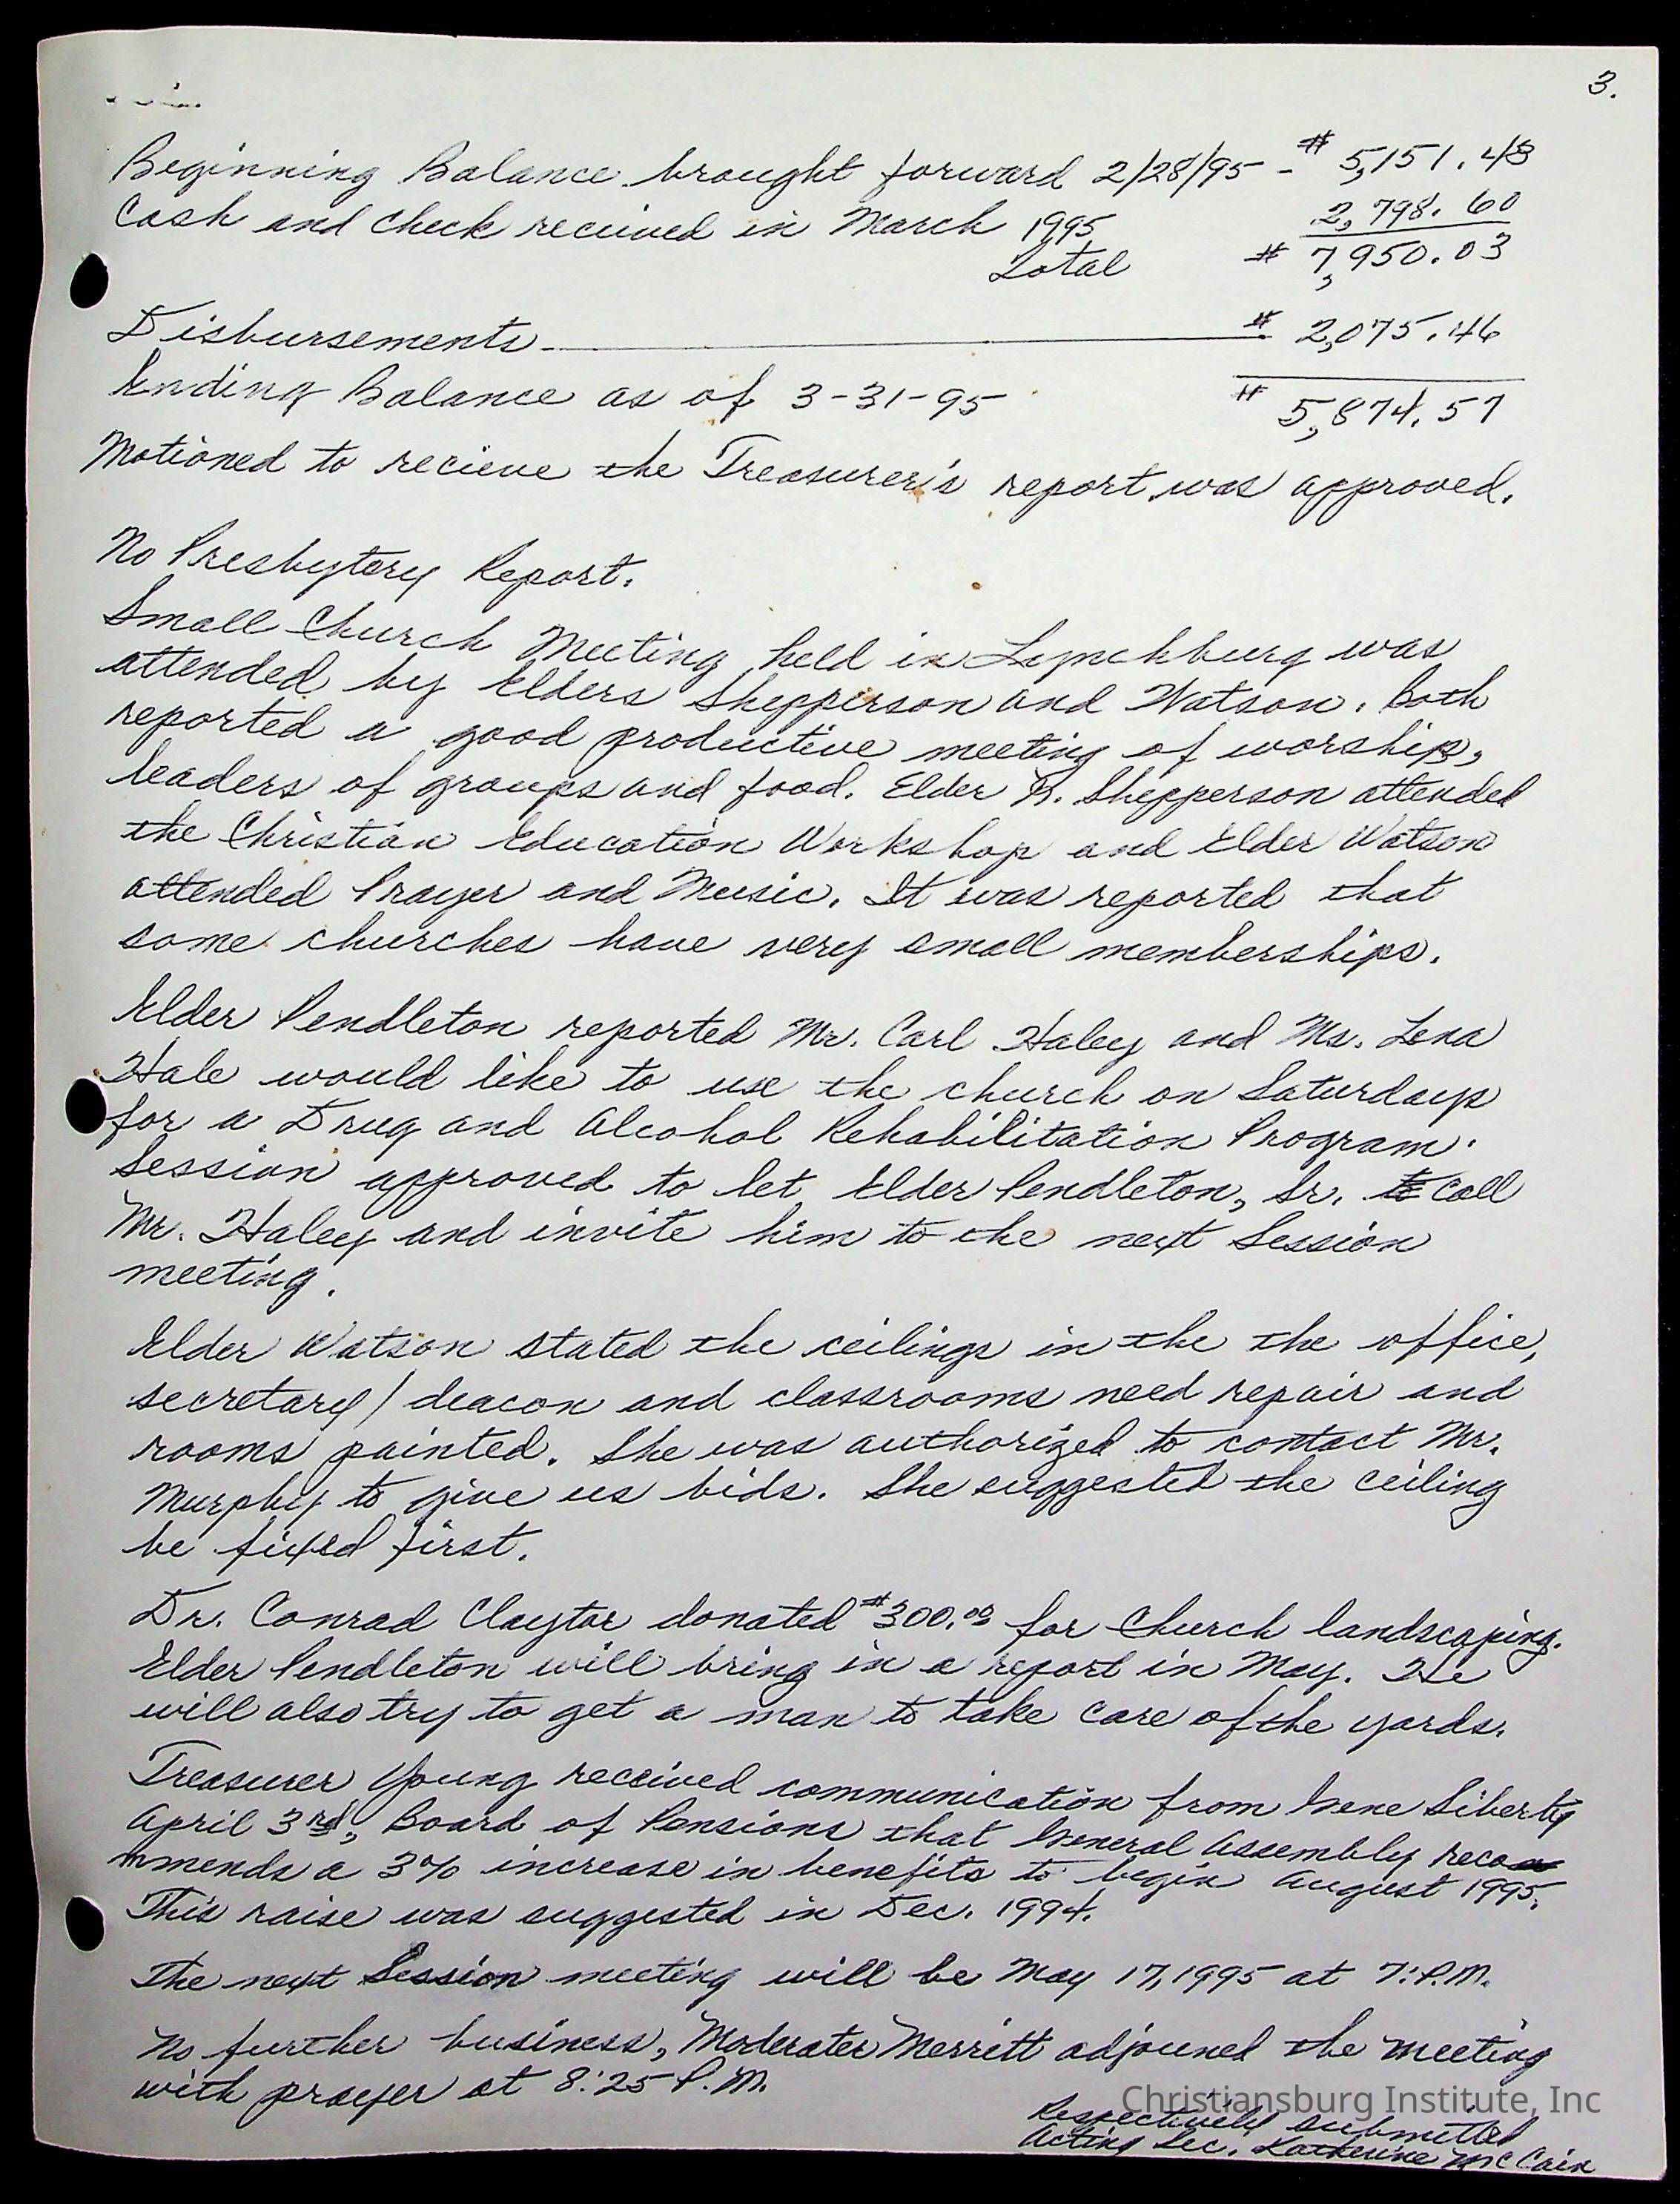 3.
Beginning Balance brought forward 2/28/95 - $ 5,151.43
Cash and check received in March 1995 2,798.60
Total $ 7,950.03
Disbursements $ 2,075.46
Ending Balance as of 3-31-95 $ 5,874.57
Motioned to recieve the Treasurer's report was approved.
No Presbytery Report.
Small Church Meeting held in Lynchburg was
attended by Elders Shepperson and Watson. Both
reported a good productive meeting of worship,
leaders of groups and food. Elder B. Shepperson attended
the Christian Education Workshop and Elder Watson
attended Prayer and Music. It was reported that
some churches have very small memberships.
Elder Pendleton reported Mr. Carl Haley and Ms. Lena
Hale would like to use the church on Saturdays
for a Drug and Alcohol Rehabilitation Program.
Session approved to let Elder Pendleton, Sr. to call
Mr. Haley and invite him to the next Session
meeting.
Elder Watson stated the ceilings in the the office,
secretary/deacon and classrooms need repair and
rooms painted. She was authorized to contact Mr.
Murphy to give us bids. She suggested the ceiling
be fixed first.
Dr. Conrad Claytor donated $300.00 for Church landscaping.
Elder Pendleton will bring in a report in May. He
will also try to get a man to take care of the yards.
Treasurer Young received communication from Gene Siberty
April 3rd, Board of Pensions that General Assembly recom
mmends a 3% increase in benefits to begin August 1995.
This raise was suggested in Dec. 1994.
The next Session meeting will be May 17, 1995 at 7:P.M.
No further business, Moderater Merritt adjouned the meeting
with prayer at 8:25 P.M.
Christiansburg Institute, Inc
Respectively submitted
Acting Sec. Katherine McCain